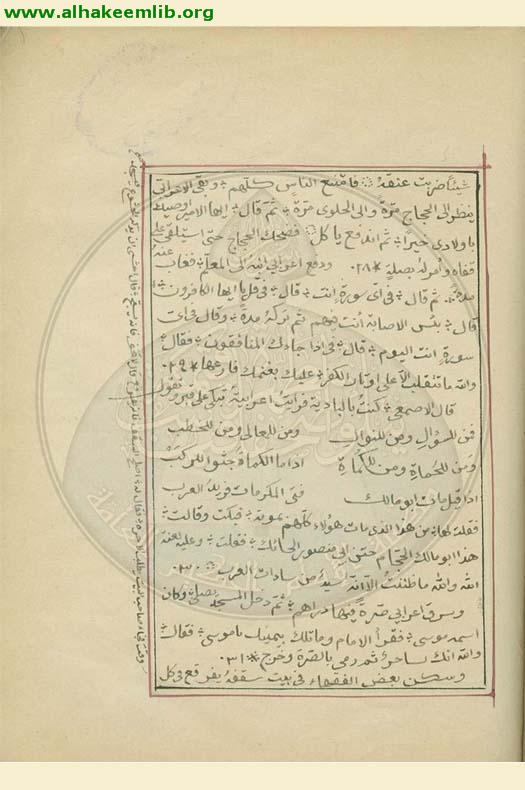 www.alhakeemlib.org
شيئًا ضربت عنقه فامتنع الناس كلهم وبقى الاعرابي
ينظر الى الحجاج مرّة والى الحلوى مرّة ثمّ قال ايها الامير اوصيك
باولادى خيرا ثم اندفع ياكل فضحك الحجاج حتى استلقى على
قفاه وامر له بصلة *٢٨٠ ودفع اعرابي ابنه الى المعلم فغاب عنه
مدة ثم قال في اى سورة انت قال في قل يا ايها الكافرون
قال بئس الاصابة أنت فيهم ثم تركه مدة وقال في اى
سورة انت اليوم قال في اذا جاءك المنافقون فقال
والله ما تنقلب الا على اوتاد الكفر عليك بغنمك فارعها *٢٩٠
قال الاصمعى كنتُ بالبادية فرايت اعرابية تبكى على قبر وتقول
فمن للسؤال ومن للنوال ومن للمعالى ومن للخطب
ومن للحماة ومن للكماة اذا ما الكماة جثوا للركب
اذا قيل مات ابو مالك فتى المكرمات فريد العرب
فقلت لها من هذا الذى مات هؤلاء كلهم بموته فبكت وقالت
هذا ابو مالك الحجام ختن ابي منصور الحائك فقلت وعليه لعنة
الله والله ما ظننتُ الا انّه سيد من سادات العرب ٣٠٠
وسرق اعرابي صرّة فيها دراهم ثم دخل المسجد يصلى وكان
اسمه موسى فقرأ الامام وما تلك بيمينك يا موسى فقال
والله انك لساحر ثم رمى بالصرّة وخرج *٣١٠
وسكن بعض الفقهاء في بيت سقفه يفرقع في كل
وقت فجاء صاحب البيت يطلب الاجرة فقال له اصلح السقف فانه يفرقع قال لا تخف فانه يسبح قال اخشى ان